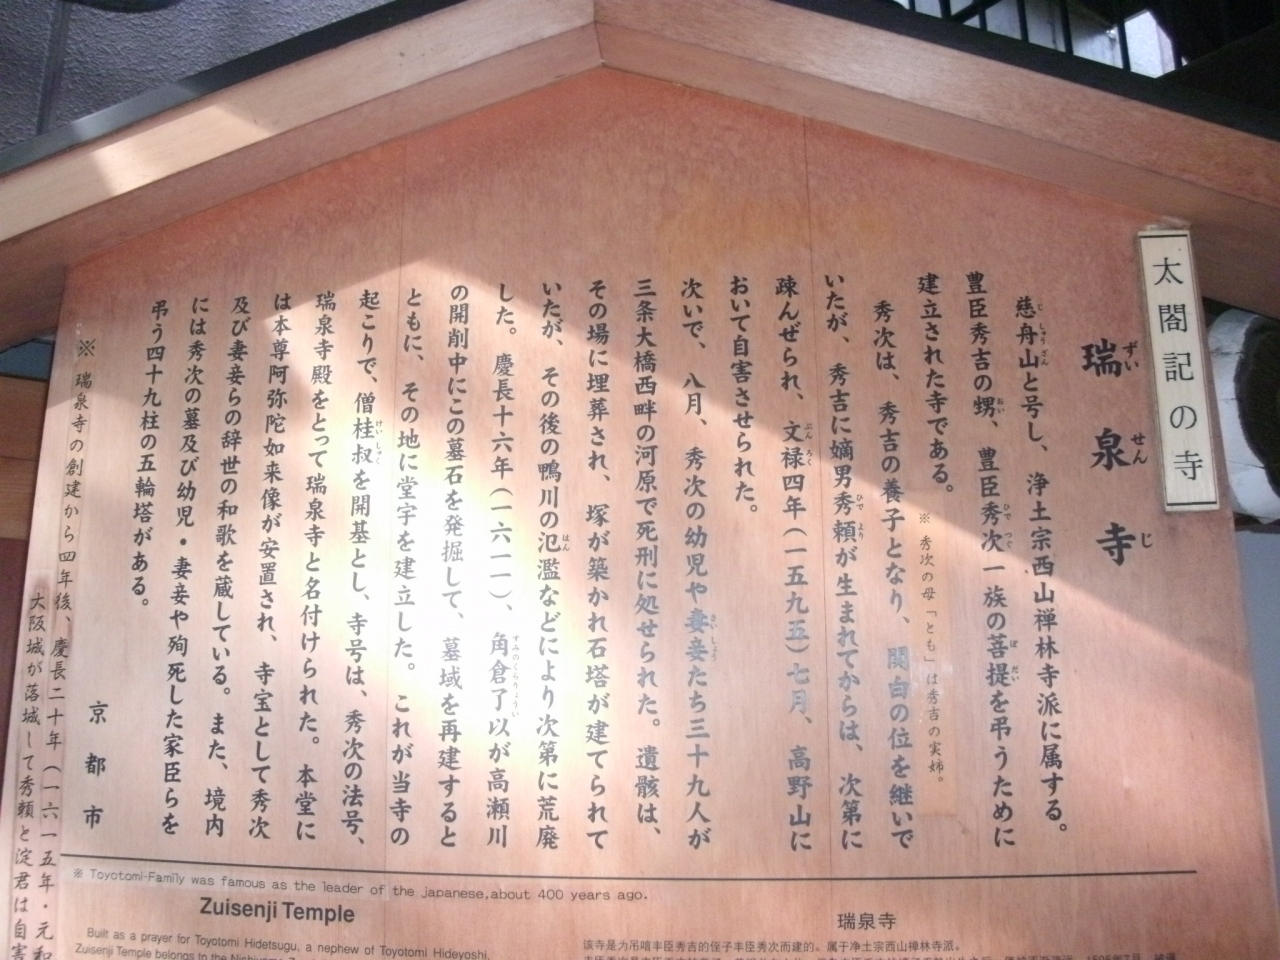 太閤記の寺
瑞泉寺
ずいせんじ
慈舟山と号し、浄土宗西山禅林寺派に属する。
豊臣秀吉の甥、豊臣秀次一族の菩提を弔うために
建立された寺である。
※秀次の母「とも」は秀吉の実姉。
秀次は、秀吉の養子となり、関白の位を継いで
いたが、秀吉に嫡男秀頼が生まれてからは、次第に
疎んぜられ、文禄四年(一五九五)七月、高野山に
おいて自害させられた。
次いで、八月、秀次の幼児や妻妾たち三十九人が
三条大橋西畔の河原で死刑に処せられた。遺骸は、
その場に埋葬され、塚が築かれ石塔が建てられて
いたが、その後の鴨川の氾濫などにより次第に荒廃
した。慶長十六年(一六一一)、角倉了以が高瀬川
の開削中にこの墓石を発掘して、墓域を再建すると
ともに、その地に堂宇を建立した。これが当寺の
起こりで、僧桂叔を開基とし、寺号は、秀次の法号、
瑞泉寺殿をとって瑞泉寺と名付けられた。本堂に
は本尊阿弥陀如来像が安置され、寺宝として秀次
及び妻妾らの辞世の和歌を蔵している。また、境内
には秀次の墓及び幼児・妻妾や殉死した家臣らを
弔う四十九柱の五輪塔がある。
京都市
※瑞泉寺の創建から四年後、慶長二十年(一六一五年・元和
大阪城が落城して秀頼と淀君は自害
※ Toyotomi-Family was famous as the leader of the japanese,about 400 years ago.
Zuisenji Temple
Built as a prayer for Toyotomi Hidetsugu, a nephew of Toyotomi Hideyoshi,
Zuisenji Temple belongs to the
瑞泉寺
该寺是为吊唁丰臣秀吉的侄子丰臣秀次而建的。属于净土宗西山禅林寺派。